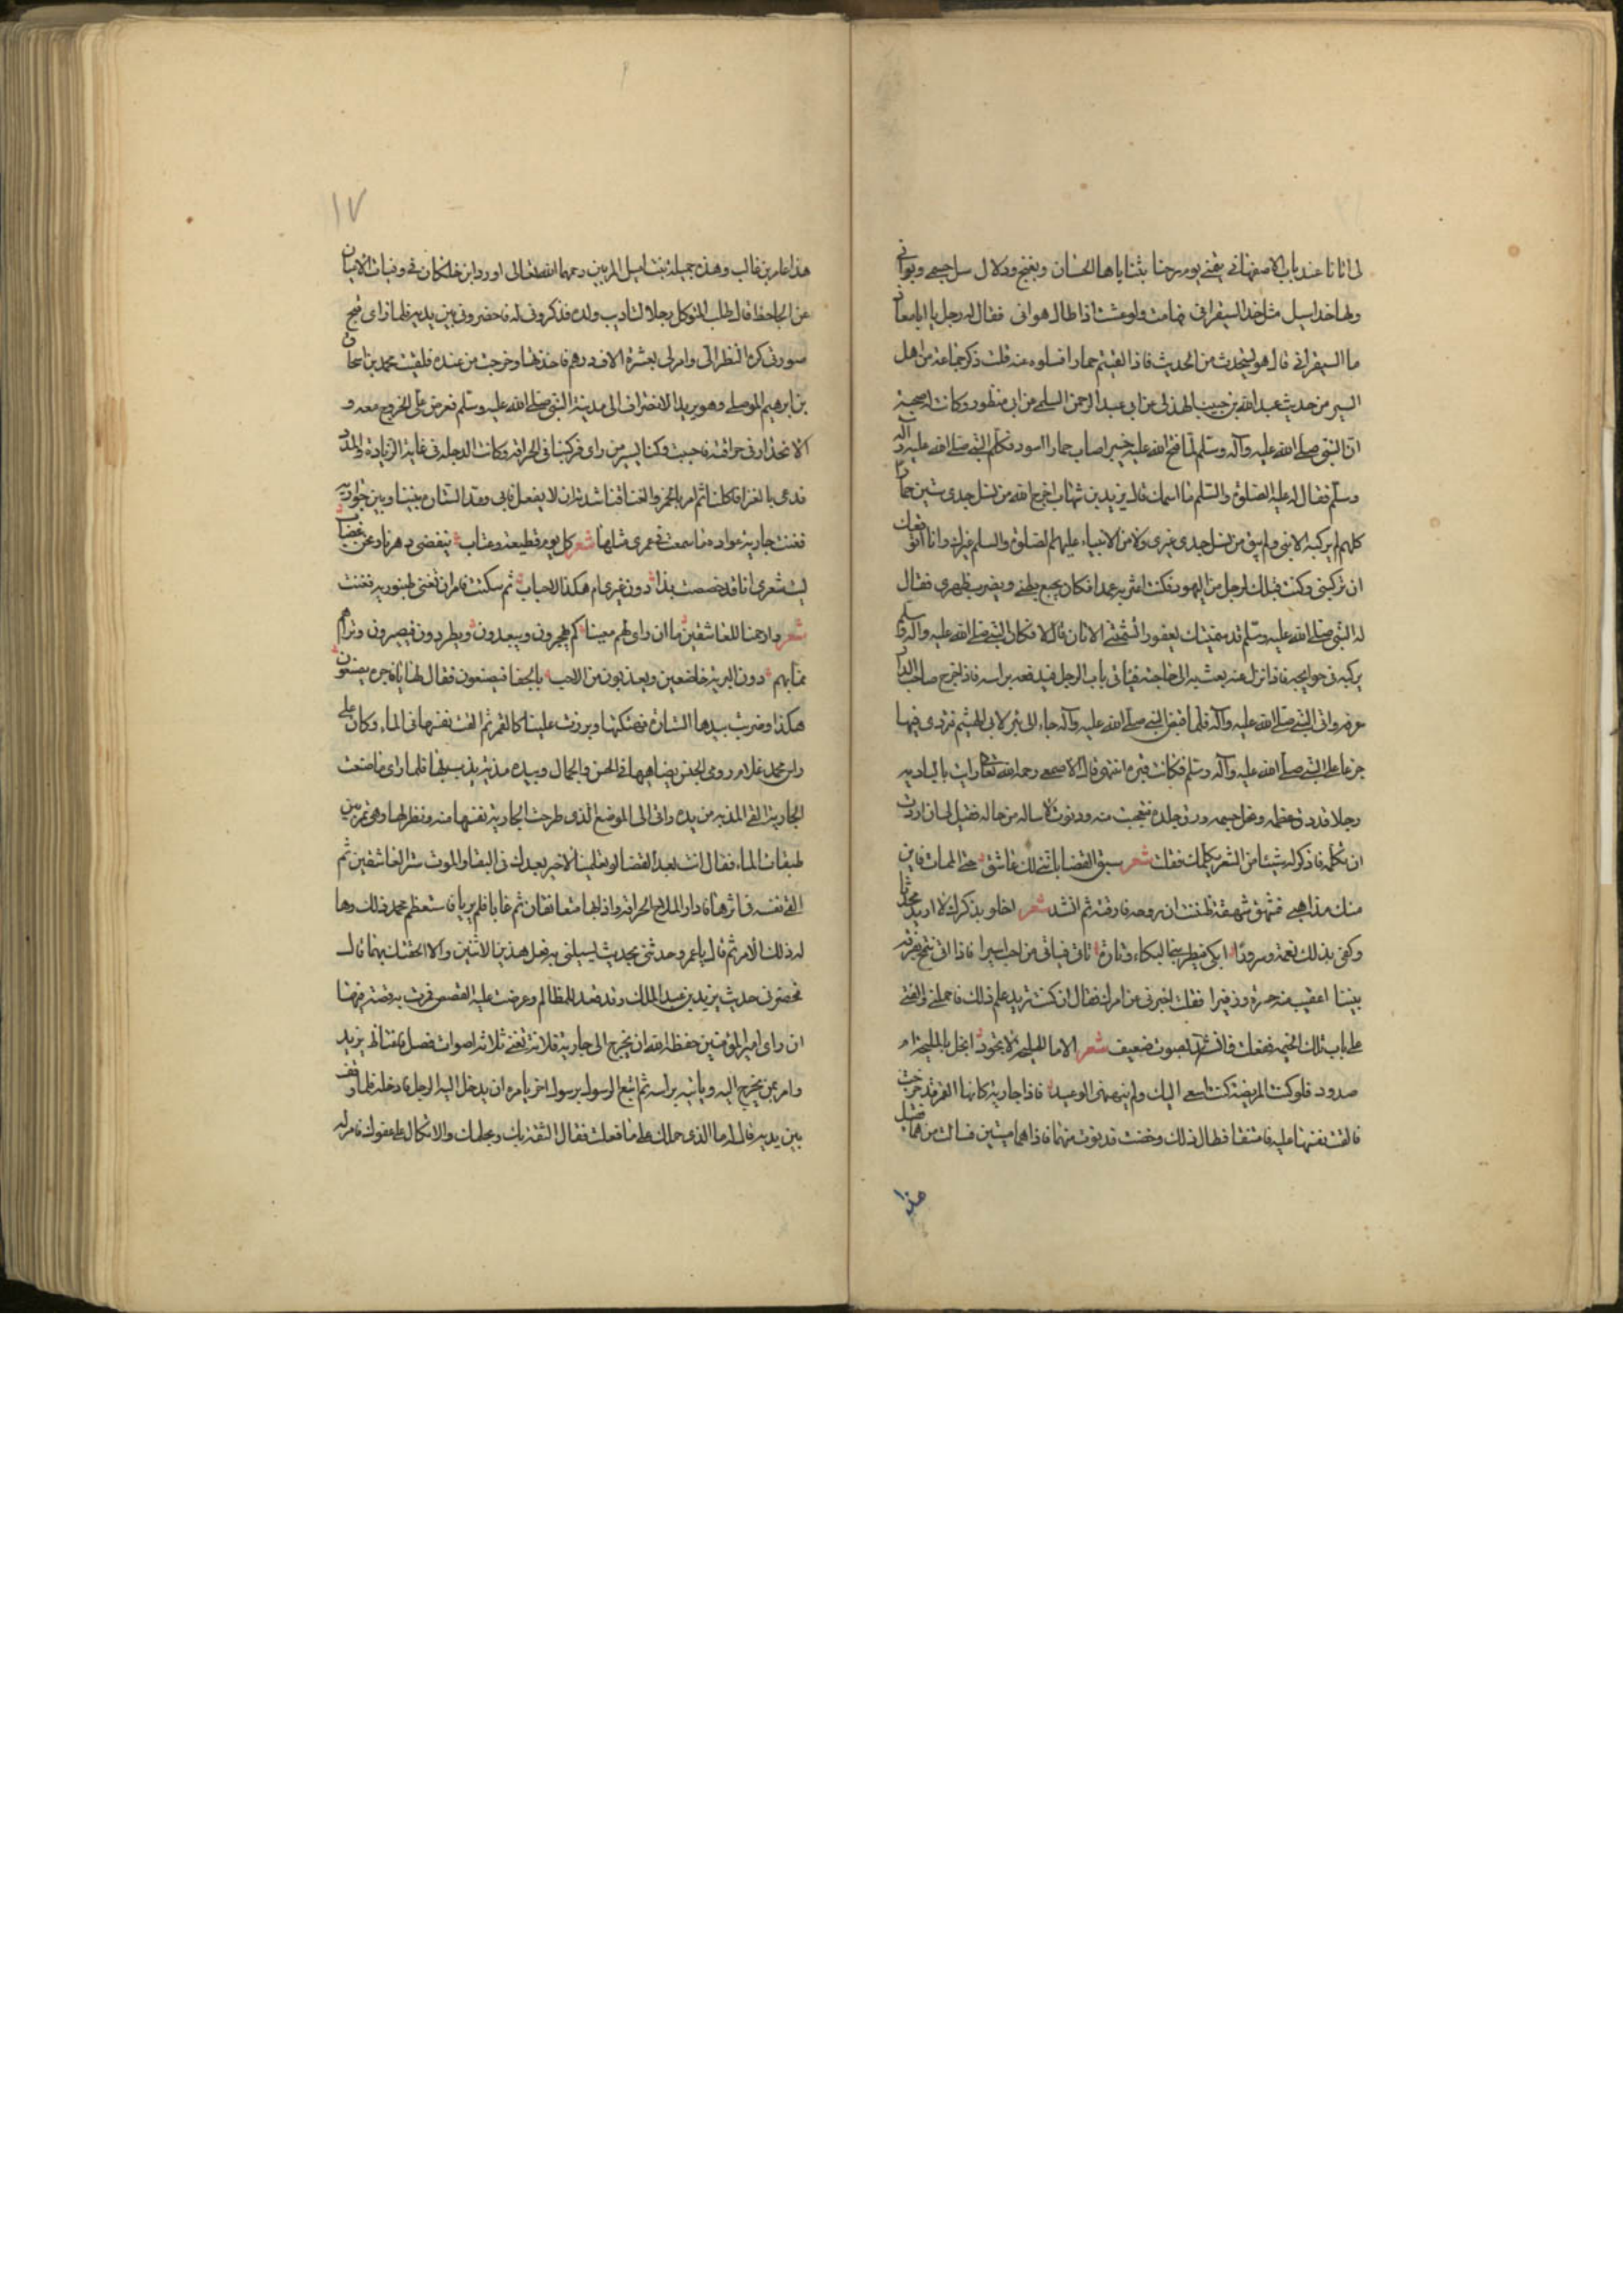 لى اتانا عند باب الاصفهانى تيمتنى يوم رحنا بثناياها الحسان وبغنج ودلال سل جسمى وبرانى
ولها خد اسيل مثل خد الشيفرانى فبها مت ولو عشت اذا طال هوانى فقال له رجل يا ابا معاذ
ما الشيفرانى قال هو يتحدث من الحديث فاذا لقيتم حمارا فسلوه عنه قلت ذكر جماعة من اهل
السير من حديث عبد الله بن حبيب الهذلى عن ابى عبد الرحمن السلمى عن ابى منظور وكانت له صحبة
ان النبى صلى الله عليه وآله وسلم لما فتح الله عليه خيبر اصاب حمارا اسود فكلم النبى صلى الله عليه وآله
وسلم فقال له عليه الصلوة والسلم ما اسمك قال يزيد بن شهاب اخرج الله من نسل جدى ستين حمارا
كلهم لم يركبه الا نبى ولم يبق من نسل جدى غيرى ولا من الانبياء عليهم الصلوة والسلم غيرك وانا اتوقعك
ان تركبنى وكنت قبلك لرجل من اليهود فكنت اعثر به عمدا فكان يجيع بطنى ويضرب ظهرى فقال
له النبى صلى الله عليه وسلم قد سميتك يعفور اتشتهى الاتان قال لا فكان النبى صلى الله عليه وآله وسلم
يركبه فى حوايجه فاذا نزل عنه بعث به الى حاجته فياتى باب الرجل فيدفعه براسه فاذا خرج صاحب الدار
عرفه واتى النبى صلى الله عليه وآله فلما قبض النبى صلى الله عليه وآله جاء الى بئر لابى الهيثم فتردى فيها
جزعا على النبى صلى الله عليه وآله وسلم فكانت قبره انتهى قال الاصمعى رحمه الله تعالى رايت بالبادية
رجلا قد دق عظمه ونحل جسمه ورق جلده فتعجبت منه ودنوت لاساله عن حاله فقيل لى ان اردت
ان تكلمه فاذكر له شيئا من الشعر يكلمك فقلت شعر سبق القضا بانى لك عاشق حتى الممات فاين
منك مذاهبى فشهق شهقة ظننت ان روحه فارقته ثم انشد شعر اخلو بذكرك لا اريد محدثا
وكفى بذلك نعمة وسرورا ابكى فيطربنى البكاء وتارة ياتى فياتى من احب اسيرا فاذا اتى سمح بفرقة
بيننا اعقب منه حسرة وزفيرا فقلت اخبرنى عن امرك فقال ان كنت تريد علم ذلك فاحملنى والقنى
على باب تلك الخيمه ففعلت فانشد بصوت ضعيف شعر الا ما للمليحة لا تعود ابخل بالمليحة ام
صدود فلو كنت المريضة كنت اسعى اليك ولم ينهنهنى الوعيد فاذا جارية كانها القمر قد خرجت
فالقت نفسها عليه فاعتنقا فطال ذلك وخفت قدنوت منهما فاذا هما ميتين فسالت عنهما فقيل
هذا
١٧
هذا عامر بن غالب وهذه جميلة بنت اميل المزنيين رحمهما الله تعالى اورد ابن خلكان فى وفيات الاعيان
عن الجاحظ قال طلب المتوكل رجلا لتاديب ولده فذكرونى له فاحضرونى بين يديه فلما راى قبح
صورتى كره النظر الى وامر لى بعشرة الاف درهم فاخذتها وخرجت من عنده فلقيت محمد بن اسحاق
بن ابرهيم الموصلى وهو يريد الانصراف الى مدينة النبى صلى الله عليه وسلم فعرض على الخروج معه و
الانحدار فى حراقته فاجبت وكنا بسر من راى فركبنا فى الحراقه وكانت الدجله فى غاية الزيادة والمد
فدعى بالغذا فاكلنا ثم امر بالخمر والغنا فناشدته ان لا يفعل فابى ومد الستارة بيننا وبين جواريه
فغنت جارية عوادة ما سمعت فى عمرى مثلها شعر كل يوم قطيعة وعتاب ينقضى دهرنا ونحن غضاب
ليت شعرى انا قد خصصت بهذا دون غيرى ام هكذا الاحباب ثم سكتت فامر ان تغنى طنبوريه فغنت
شعر وارحمتا للعاشقين ما ان راى لهم معينا كم يهجرون ويبعدون ويطردون فيصبرون وتراهم
بما بهم دون البرية خاضعين ويعذبون من الاحبه بالجفا فيصنعون فقال لها يا فاجره يصنعون
هكذا وضربت بيدها الستارة فهتكتها وبرزت علينا كالقمر ثم القت نفسها فى الماء وكان على
راس محمد غلام رومى الجنس يضاهيها فى الحسن والجمال وبيده مذبة يذب بها فلما راى ما صنعت
الجارية القى المذبة من يده واتى الى الموضع الذى طرحت الجارية نفسها منه ونظر لها وهى تمر بين
طبقات الماء فقال انت بعد القضا لو تعلمينا لا خير بعدك فى البقا والموت ستر العاشقين ثم
القى نفسه فى اثرها فادار الملاح الحراقة واذا بهما متعانقان ثم غابا فلم يريا فاستعظم محمد ذلك وهاله
له ذلك الامر ثم قال يا عمرو حدثنى بحديث يسلينى عن فعل هذين الاثنين والا الحقتك بهما قال
فحضرنى حديث يزيد بن عبد الملك وقد قعد للمظالم وعرضت عليه القصص فمرت به قصة فيها
ان راى امير المؤمنين حفظه الله ان يخرج الى جارية فلانة تغنى ثلاثة اصوات فعل فاغتاظ يزيد
وامر بمن يخرج اليه وياتيه براسه ثم اتبع الرسول برسول اخر يامره ان يدخل اليه الرجل فادخله فلما وقف
بين يديه قال له ما الذى حملك على ما فعلت فقال الثقة بك وبحلمك والاتكال على عفوك فامر له